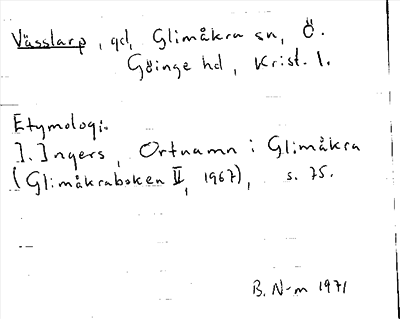 Vässlarp, gd, Glimåkra sn, Ö.
Göinge hd, Krist. l.
Etymologi:
I. Ingers, Ortnamn i Glimåkra
(Glimåkraboken II, 1967), s. 75.
B. N-m 1971